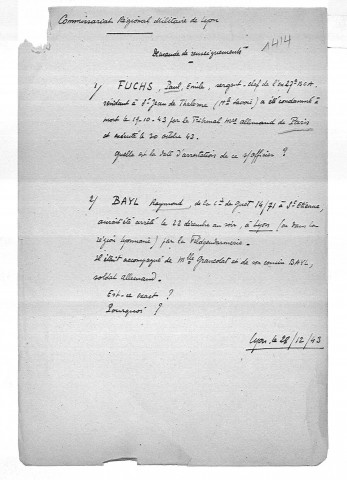 Commissariat Régional Militaire de Lyon
1414
Demande de renseignements
1/ FUCHS, Paul, Emile, sergent-chef de l'ex 27e BCA
résidant à St-Jean de Tholome (Hte Savoie) a été condamné à
mort le 19-10-43 par le Tribunal Mre allemand de Paris
et exécuté le 20 octobre 43.
Quelle est la date d'arrestation de ce s/officier ?
2/ BAYL Raymond, de la Cie de Guet 14/71 à St Etienne,
aurait été arrêté le 22 décembre au soir, à Lyon (ou dans la
région lyonnaise) par la Feldgendarmerie.
Il était accompagné de Mlle et de son cousin BAYL,
soldat allemand.
Est-ce exact ?
Pourquoi ?
Lyon, le 28/12/43